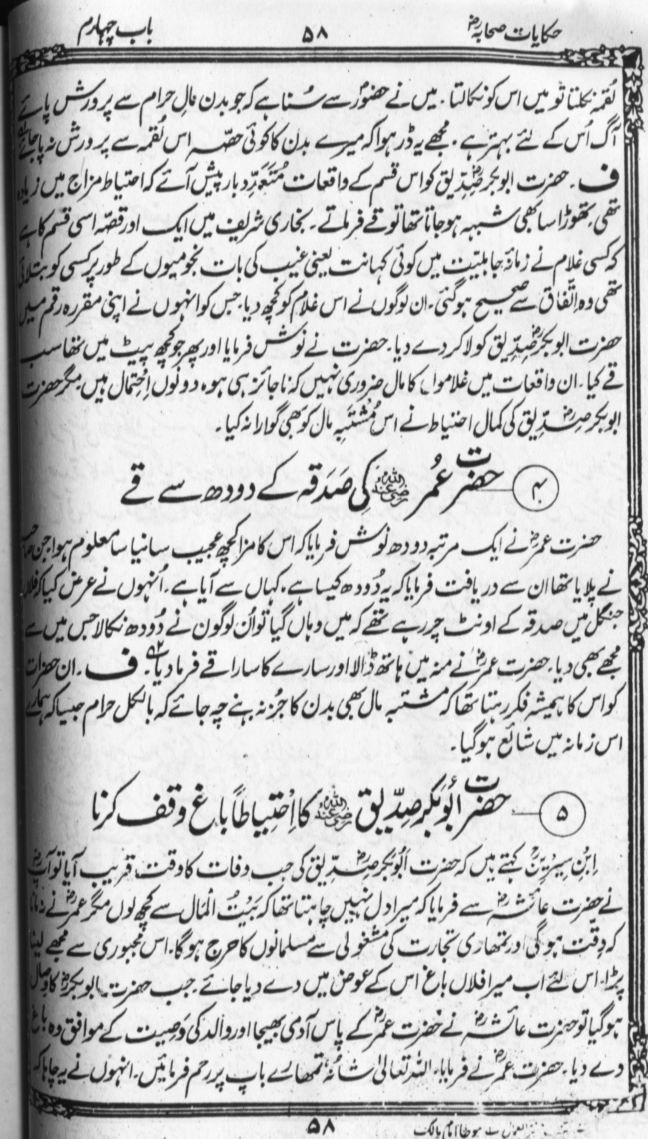 حکایات صحابہؓ ۵۸ باب چہارم
لقمہ نکلتا تو میں اس کو نکالتا۔ میں نے حضورؐ سے سُنا ہے کہ جو بدن مالِ حرام سے پرورش پائے
آگ اُس کے لئے بہتر ہے۔ مجھے یہ ڈر ہوا کہ میرے بدن کا کوئی حصّہ اس لُقمہ سے پرورش نہ پا جائے
ف۔ حضرت ابوبکر صِدّیقؓ کو اس قسم کے واقعات مُتَعَدِّد بار پیش آئے کہ احتیاط مزاج میں زیادہ
تھی، تھوڑا سا بھی شبہہ ہو جاتا تھا تو قے فرماتے۔ بخاری شریف میں ایک اور قصّہ اسی قسم کا ہے
کہ کسی غلام نے زمانۂ جاہلیّت میں کوئی کہانت یعنی غیب کی بات نجومیوں کے طور پر کسی کو بتلائی
تھی وہ اتّفاق سے صحیح ہوگئی۔ ان لوگوں نے اس غلام کو کچھ دیا۔ جس کو انہوں نے اپنی مقررہ رقم میں
حضرت ابوبکر صدِّیقؓ کو لاکر دے دیا۔ حضرت نے نوش فرمایا اور پھر جو کچھ پیٹ میں تھا سب
قے کیا۔ ان واقعات میں غلاموں کا مال ضروری نہیں کہ ناجائز ہی ہو، دونوں احتمال ہیں مگر حضرت
ابوبکر صدِّیقؓ کی کمال احتیاط نے اس مُشتَبِہ مال کو بھی گوارا نہ کیا۔
۴ حضرت عُمر رضی اللہ عنہ کی صَدَقہ کے دودھ سے قے
حضرت عمرؓ نے ایک مرتبہ دودھ نوش فرمایا کہ اس کا مزا کچھ عجیب سا نیا سا معلوم ہوا۔ جن صاحب
نے پلایا تھا ان سے دریافت فرمایا کہ یہ دُودھ کیسا ہے، کہاں سے آیا ہے۔ اُنہوں نے عرض کیا کہ فلاں
جنگل میں صدقہ کے اونٹ چر رہے تھے کہ میں وہاں گیا تو اُن لوگوں نے دُودھ نکالا جس میں سے
مجھے بھی دیا۔ حضرت عمرؓ نے منہ میں ہاتھ ڈالا اور سارے کا سارا قے فرما دیا۔ ف۔ ان حضرات
کو اس کا ہمیشہ فکر رہتا تھا کہ مشتبہ مال بھی بدن کا جُز نہ بنے چہ جائے کہ بالکل حرام جیسا کہ ہمارے
اس زمانہ میں شائع ہوگیا۔
۵ حضرت ابُوبکر صدّیق رضی اللہ عنہ کا اِحْتِیاطاً باغ وقف کرنا
اِبنِ سِیرِینؒ کہتے ہیں کہ حضرت ابُوبکر صدِّیقؓ کی جب وفات کا وقت قریب آیا تو آپؓ
نے حضرت عائشہؓ سے فرمایا کہ میرا دل نہیں چاہتا تھا کہ بَیتُ المَال سے کچھ لوں مگر عمرؓ نے نہ مانا
کہ دِقّت ہوگی اور تمھاری تجارت کی مشغولی سے مسلمانوں کا حرج ہوگا۔ اس مجبوری سے مجھے لینا
پڑا۔ اس لئے اب میرا فلاں باغ اس کے عوض میں دے دیا جائے۔ جب حضرت ابوبکرؓ کا وصال
ہوگیا تو حضرت عائشہؓ نے حضرت عمرؓ کے پاس آدمی بھیجا اور والد کی وصیت کے موافق وہ باغ
دے دیا۔ حضرت عمرؓ نے فرمایا، اللہ تعالیٰ شانُہ تمھارے باپ پر رحم فرمائیں۔ انہوں نے یہ چاہا کہ
موطا امام مالک
۵۸